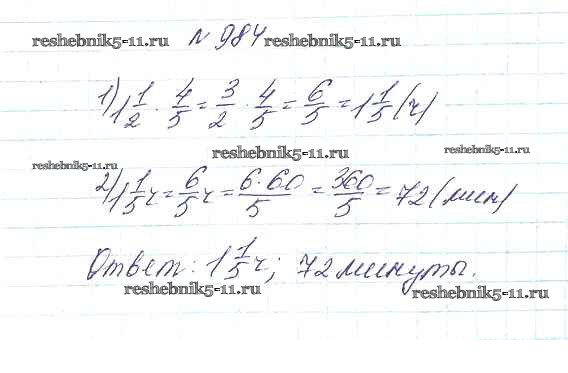 reshebnik5-11.ru № 984 reshebnik5-11.ru
1) 1 1/2 · 4/5 = 3/2 · 4/5 = 6/5 = 1 1/5 (ч)
reshebnik5-11.ru reshebnik5-11.ru
reshebnik5-11.ru
2) 1 1/5 ч = 6/5 ч = 6·60/5 = 360/5 = 72 (мин)
Ответ: 1 1/5 ч; 72 минуты.
reshebnik5-11.ru reshebnik5-11.ru